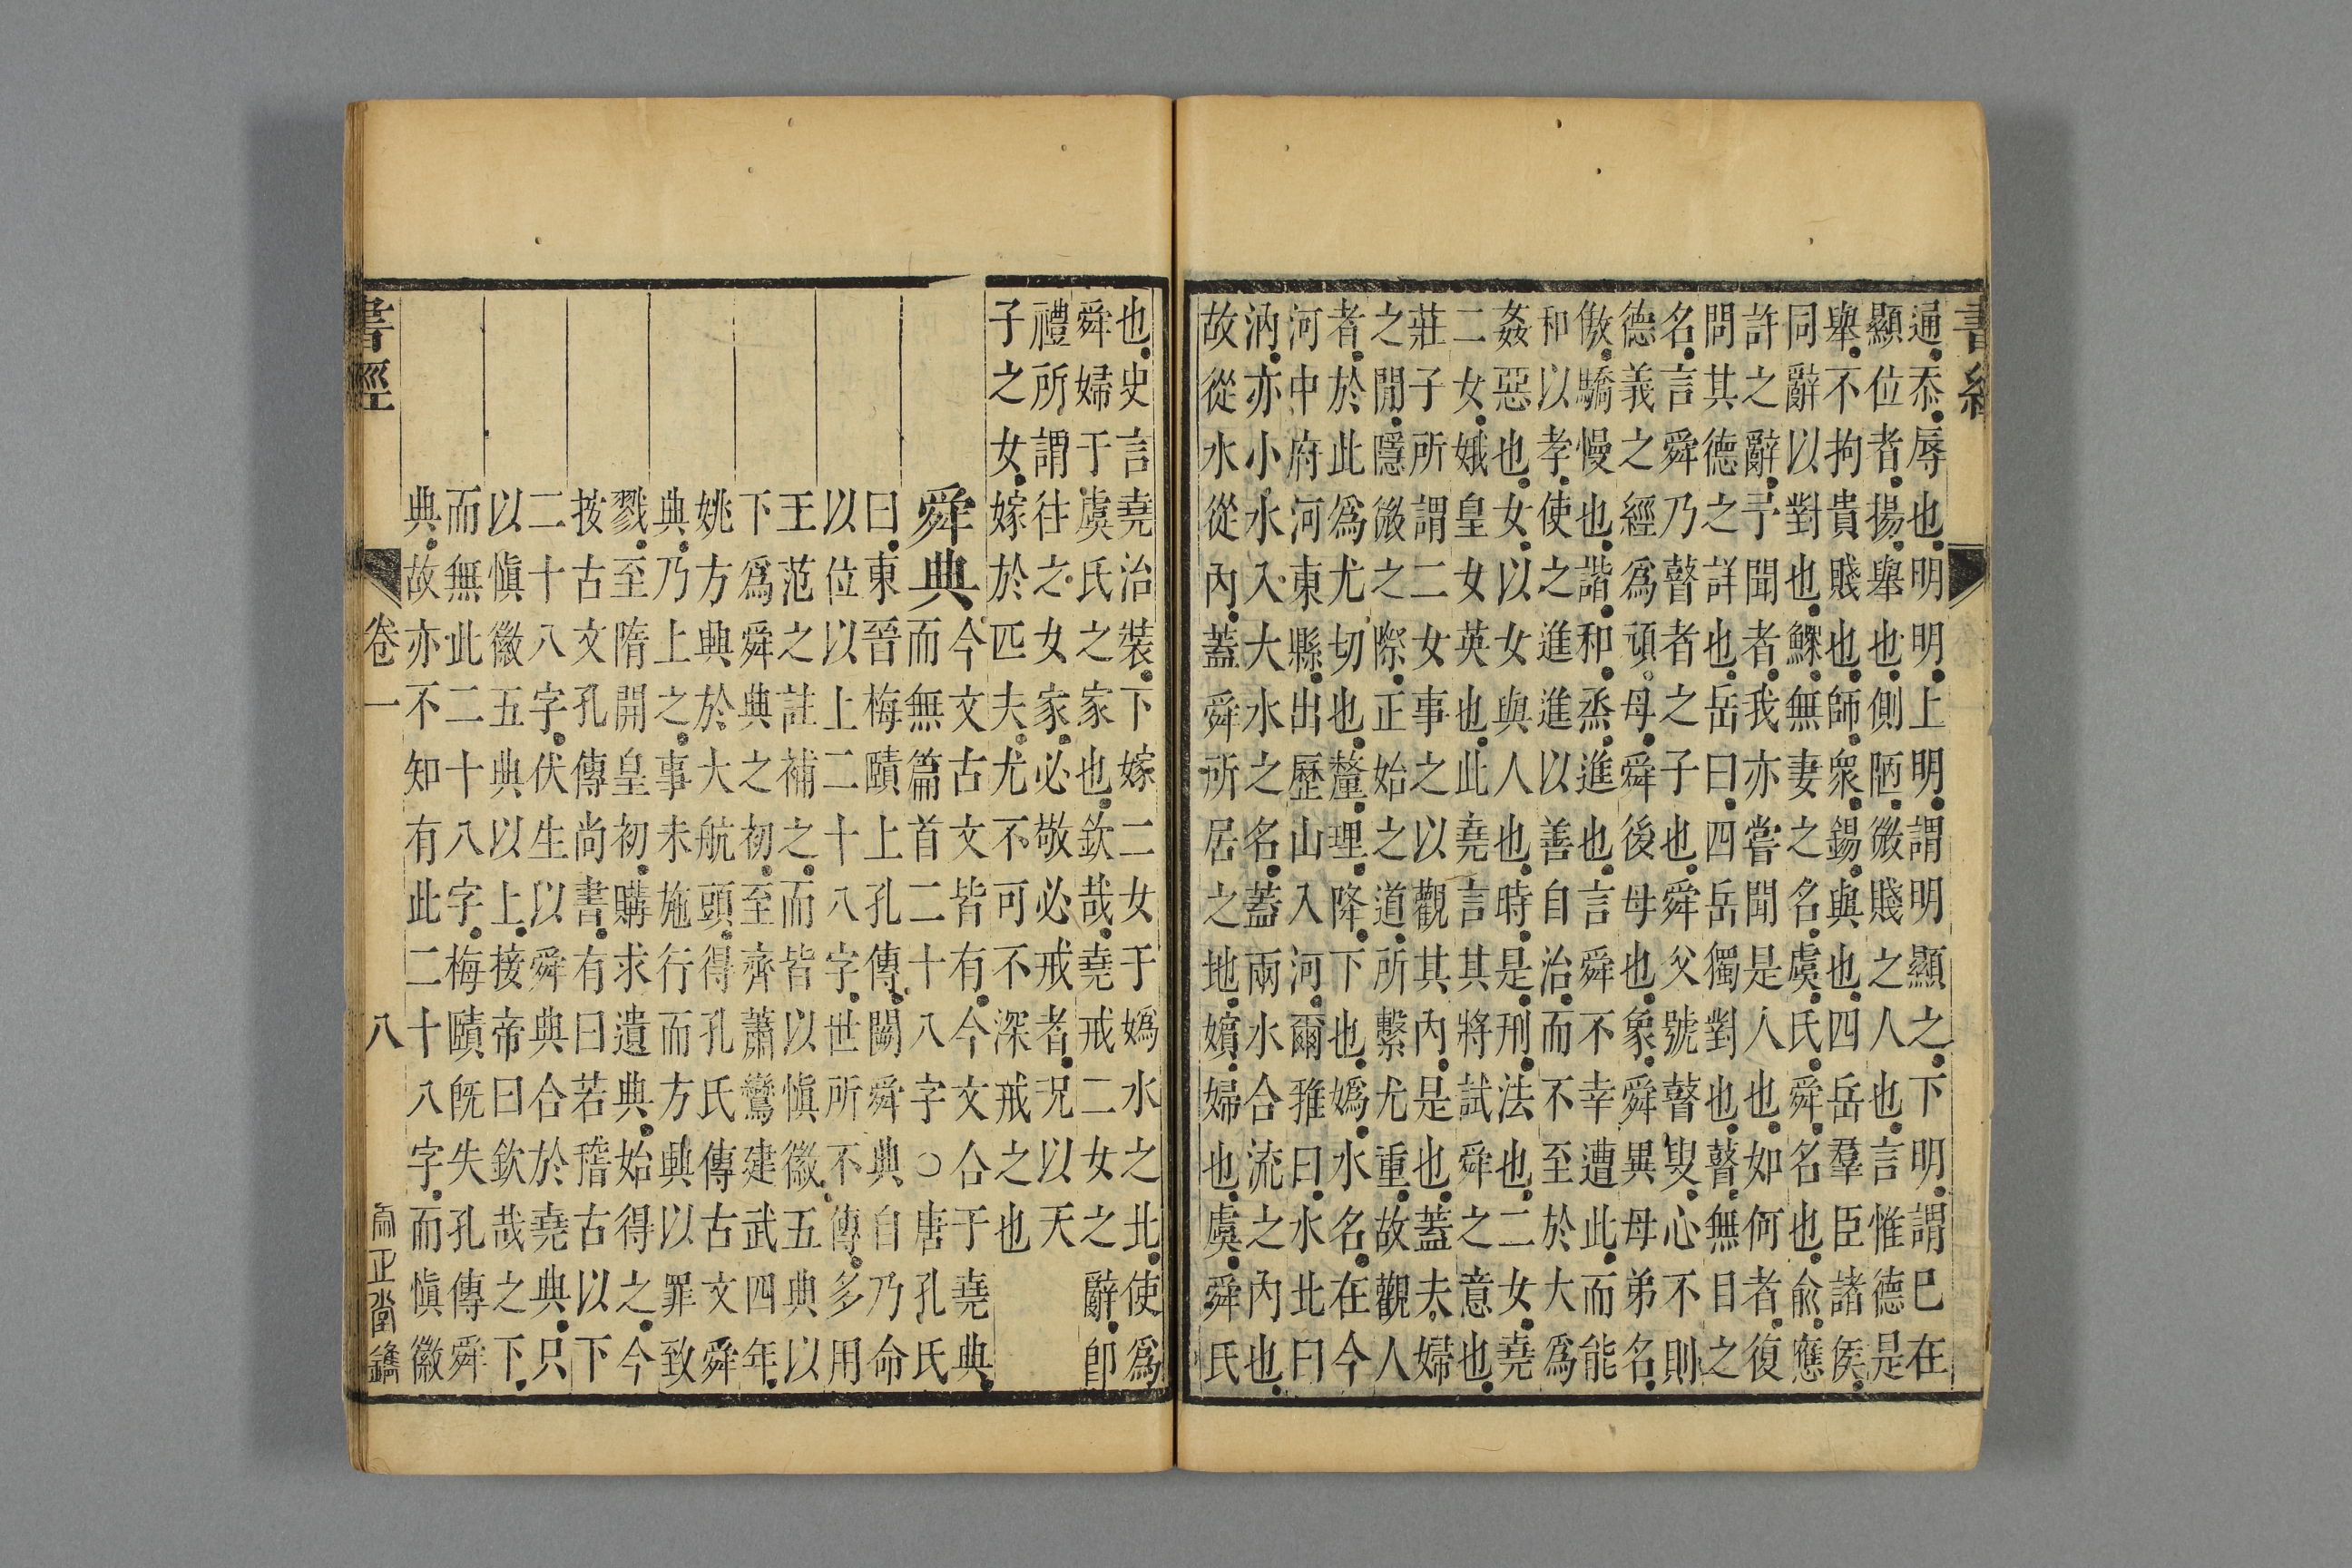 書經
通忝辱也明明上明謂明顯之下明謂巳在
顯位者揚舉也側陋微賤之人也言惟德是
舉不拘貴賤也師衆錫與也四岳羣臣諸侯
同辭以對也鰥無妻之名虞氏舜名也俞應
許之辭予聞者我亦嘗聞是人也如何者復
問其德之詳也岳曰四岳獨對也瞽無目之
名言舜乃瞽者之子也舜父號瞽叟心不則
德義之經爲頑母舜後母也象舜異母弟名
傲驕慢也諧和烝進也言舜不幸遭此而能
和以孝使之進進以善自治而不至於大爲
姦惡也女以女與人也時是刑法也二女堯
二女娥皇女英也此堯言其將試舜之意也
莊子所謂二女事之以觀其內是也蓋夫婦
之閒隱微之際正始之道所繫尤重故觀人
者於此爲尤切也釐理降下也嬀水名在今
河中府河東縣出歷山入河爾雅曰水北曰
汭亦小水入大水之名蓋兩水合流之內也
故從水從內蓋舜所居之地嬪婦也虞舜氏
也史言堯治裝下嫁二女于嬀水之北使爲
舜婦于虞氏之家也欽哉堯戒二女之辭卽
禮所謂往之女家必敬必戒者况以天
子之女嫁於匹夫尤不可不深戒之也
舜典
今文古文皆有今文合于堯典
而無篇首二十八字○唐孔氏
曰東晉梅賾上孔傳闕舜典自乃命
以位以上二十八字世所不傳多用
王范之註補之而皆以愼徽五典以
下爲舜典之初至齊蕭鸞建武四年
姚方興於大航頭得孔氏傳古文舜
典乃上之事未施行而方興以罪致
戮至隋開皇初購求遺典始得之今
按古文孔傳尚書有曰若稽古以下
二十八字伏生以舜典合於堯典只
以愼徽五典以上接帝曰欽哉之下
而無此二十八字梅賾旣失孔傳舜
典故亦不知有此二十八字而愼徽
書經 卷一 八 正堂鐫